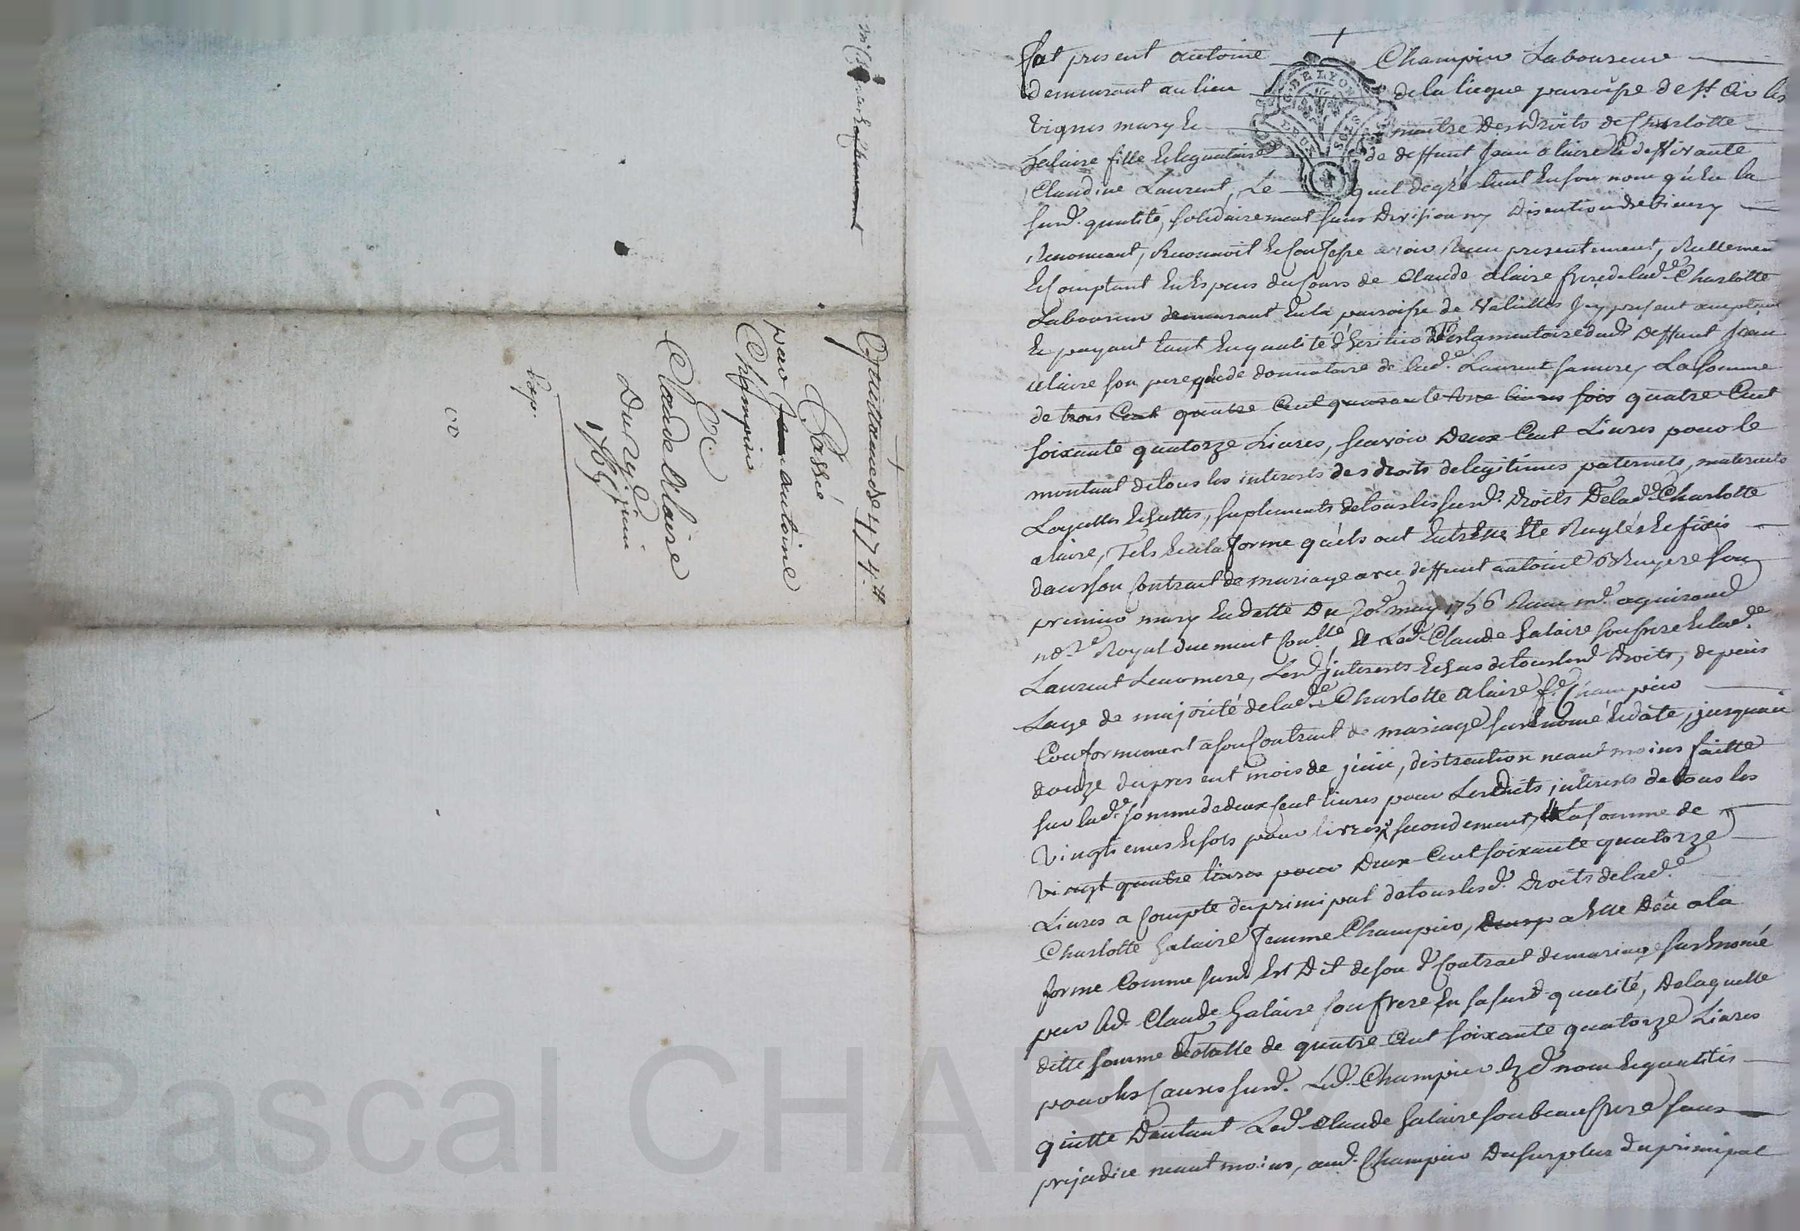 Quittance de 474 ₶
Passée
par Jean antoine
Champin
Et
Claude Alaire
Du 12 juin
Exp.
Pascal CHAREYRON
Fut present antoine Champin Laboureur
demeurant au lieu de la lieque paroisse de St. Cir les
vignes mary et maitre des droits de Charlotte
halaire fille et legataire de deffunt Jean alaire et de vivante
Claudine Laurent, Lequel degré tant en son nom qu'en la
surd. qualité, solidairement sans division ny discution de biens y
Renoncant, Reconnoit et confesse avoir Receu presentement, Réellement
et comptant en Espeses du Cours de Claude alaire frere de lad. Charlotte
Laboureur demeurant en la paroisse de Valeilles Icy present acceptant
et payant tant en qualité d'heritier testamentaire dud. deffunt Jean
alaire son pere que de donnataire de lad. Laurent sa mere, La somme
de trois Cent quatre Cent quarante livres fois quatre Cent
soixante quatorze Livres, scavoir Deux Cent Livres pour le
montant de tous les interests des droits de legitimes paternels, maternels
Laquelles, suplements de tous les surd. droits De lad. Charlotte
alaire, Tels et en la forme quels ont Entre Elle Eté Reglés et fixés
dans son Contract de mariage avec deffunt antoine Bruyere son
premier mary en datte Du 20 may 1756 Receu me. aguiraud
nore. Royal duement Conllé et Led. Claude halaire son frere et lad.
Laurent leur mere, Les d. interests Echus de tous les d. Droits, depuis
Lage de majorité de lad. Charlotte alaire fe. Champin
Conformement a son Contract de mariage surénomé et daté, jusquau
douze du present mois de juin, distraction neantmoins faitte
sur lad. somme de deux Cent livres pour Lesdits interests de tous les
vingtiemes et sols pour livres, secondement, La somme de
vingt quatre livres pour Deux Cent soixante quatorze
Livres a Compte du principal de tous les d. Droits de lad.
Charlotte halaire femme Champin, a Elle Dûe a la
forme Comme surd. Est Dit de son d. Contract de mariage surénomé
par led. Claude halaire son frere En sa surd. qualité, De laquelle
ditte somme totalle de quatre Cent soixante quatorze Livres
pour les Causes surd. Led. Champin ezd. nom et qualités
quitte D'autant Led. Claude halaire son beau frere sans
prejudice neantmoins, aud. Champin Du surplus du principal